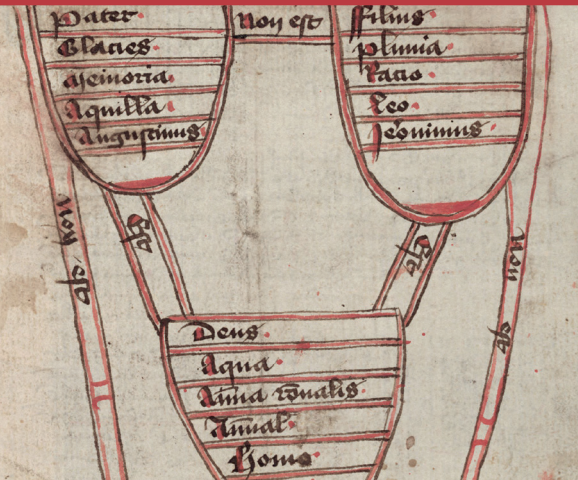 Pater
Glacies
Memoria
Aquilla
Augustinus
Non est
ffilius
Pluuia
Racio
Leo
Jeronimus
non
est
est
est
non
est
Deus
Aqua
Aīa rōnalis
Aīal
Homo